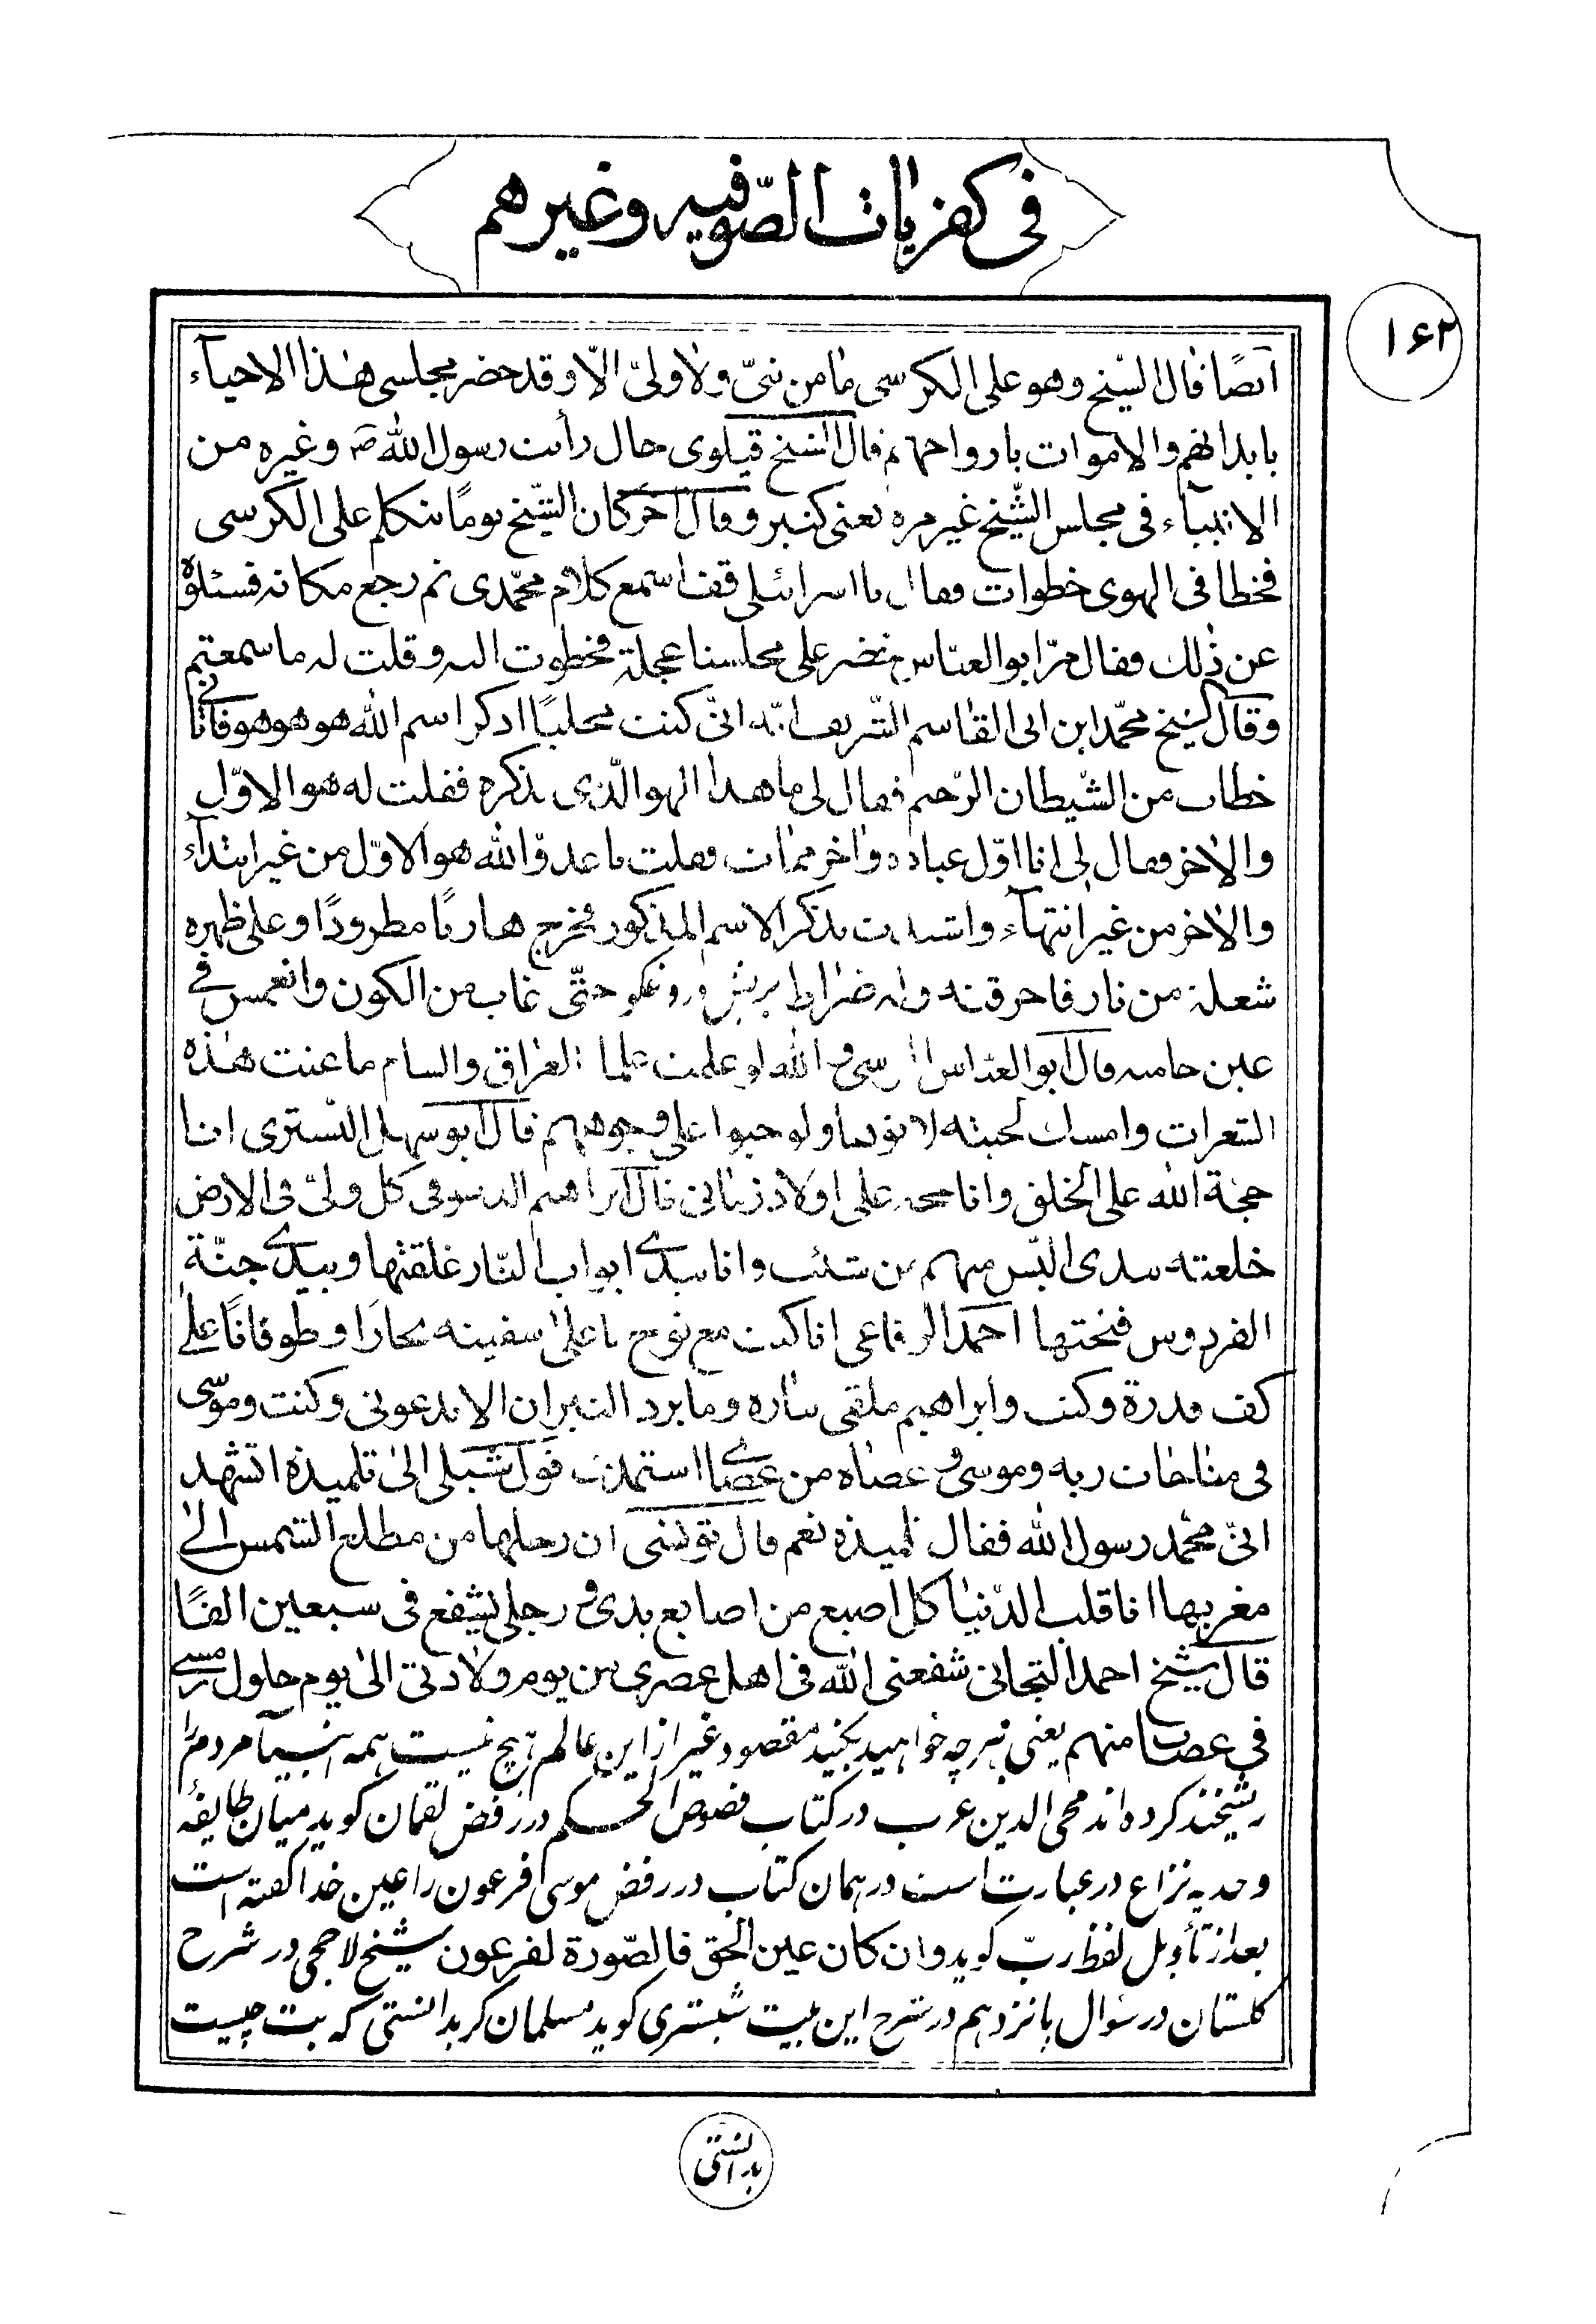 فى كفريات الصّوفيه وغيرهم
١٦٢
ايضًا قال الشيخ وهو على الكرسى ما من نبىّ ولا ولىّ الّا وقد حضر مجلسى هذا الاحياء
بابدانهم والاموات بارواحهم قال الشيخ قيلوى حال رأيت رسول الله ص وغيره من
الانبياء فى مجلس الشّيخ غير مره يعنى كثير وقال اخر كان الشّيخ يومًا يتكلم على الكرسى
فخطا فى الهوى خطوات وقال يا اسرائيلى قف اسمع كلام محمّدى ثم رجع مكانه فسئلوه
عن ذلك فقال مرّ ابو العبّاس خضر على مجلسنا عجلة فخطوت اليه وقلت له ما سمعتم
وقال شيخ محمّد ابن ابى القاسم الشّريف انّه انّى كنت اذكر اسم الله هو هو هو فاتانى
خطاب من الشّيطان الرّجيم فقال لى ما هذا الهو الّذى تذكره فقلت له هو الاوّل
والاخر فقال لى انا اوّل عباده واخر ممات فقلت يا عدوّ الله هو الاوّل من غير ابتداء
والاخر من غير انتهاء بذكر الاسم المذكور فخرج هاربًا مطرودًا وعلى ظهره
شعلة من نار فاحرقته وله ضراط حتّى غاب من الكون وانغمس فى
عين حاميه قال ابو العبّاس المرسى والله لو علمت علماء العراق والشام ما عنت هذه
الشعرات وامسك لحيته لاتوها ولو حبوا على وجوههم قال ابو سهل التسترى انا
حجة الله على الخلق وانا حجه على اولاد زمانى قال ابراهيم الدسوقى كل ولىّ فى الارض
خلعته بيدى البس منهم من شئت وانا بيدى ابواب النّار غلقتها وبيدى جنّة
الفردوس فتحتها احمد الرفاعى انا كنت مع نوح باعلى سفينه بحارًا وطوفانًا على
كف قدرة وكنت وابراهيم ملقى بناره وما برد النيران الا بدعوتى وكنت وموسى
فى مناجات ربه وموسى عصاه من عصاى استمدت قول شبلى الى تلميذه اتشهد
انّى محمّد رسول الله فقال تلميذه نعم قال تونسى ان رجلها من مطلع الشمس الى
مغربها انا قلب الدّنيا كل اصبع من اصابع يدى ورجلى يشفع فى سبعين الفًا
قال شيخ احمد التجانى شفعنى الله فى اهل عصرى من يوم ولادتى الى يوم حلول رمسى
فى عصات منهم يعنى هر چه خواهيد بكنيد مقصود غير از اين عالم هيچ نيست همه انبياء مردم را
ريشخند كرده‌اند محى الدين عرب در كتاب فصوص الحكم در رفض لقمان كويد ميان طايفۀ
وحديه نزاع در عبارت است در همان كتاب در رفض موسى فرعون را عين خدا كفته است
بعد از تأويل لفظ ربّ كويد وان كان عين الحق فالصّورة لفرعون شيخ لاهجى در شرح
كلستان در سؤال پانزدهم در شرح اين بيت شبسترى كويد مسلمان كر بدانستى كه بت چيست
بدانستى